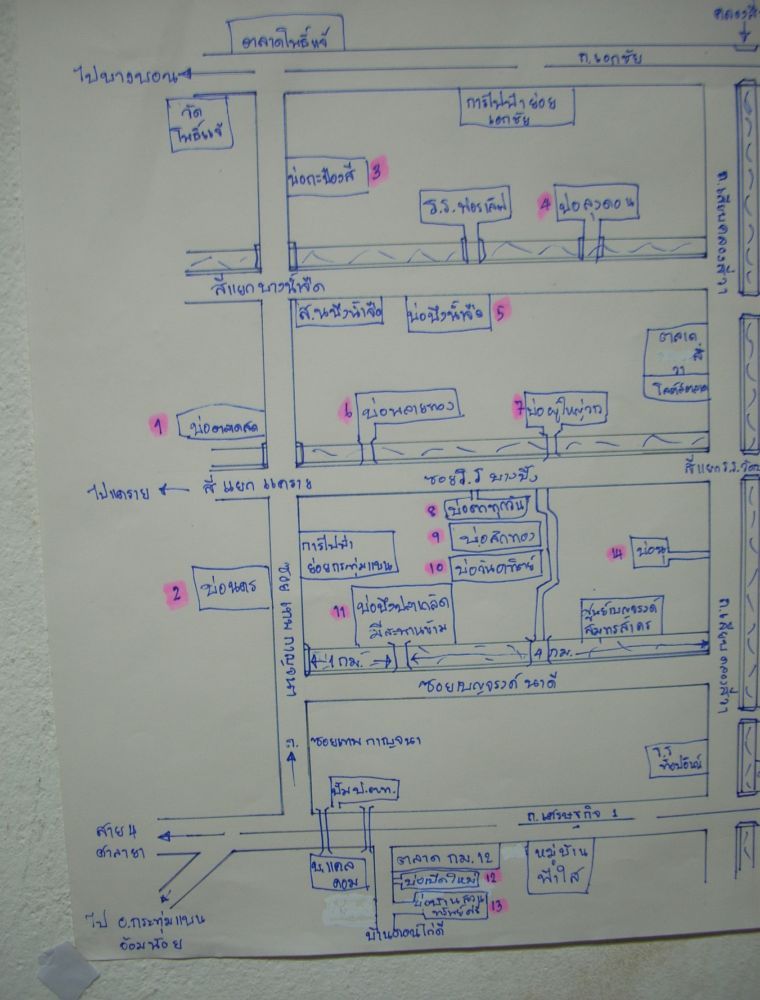 ตลาดโพธิ์แจ้
คลองสี่
ถ.เอกชัย
ไปบางบอน
วัด
โพธิ์แจ้
การไฟฟ้าย่อย
เอกชัย
บ่อกะป๋องสี 3
4 บ่อลุงดอน
ถ.เลียบคลองสี่วา
สี่แยกบางน้ำจืด
ส.นบึงน้ำจืด
บ่อบึงน้ำจืด 5
ตลาด
สี่
วา
1 บ่อตลาดสด
6 บ่อพลายทอง
7 บ่อผู้ใหญ่วก
ไปแคราย
สี่แยกแคราย
ซอยร.ร บางปิ้ง
8
9 บ่อสักทอง
10 บ่อวันอาทิตย์
การไฟฟ้า
ย่อยกระทุ่มแบน
14 บ่อนุ
2 บ่อนคร
11 บ่อบึงปลาเกล็ด
มีสะพานข้าม
ศูนย์เบญจรงค์
สมุทรสาคร
ซอย เทพกาญจนา
1 กม.
4 กม.
ซอยเบญจรงค์ นาดี
ถ.เลียบคลองสี่วา
ซอยเทพกาญจนา
ร.ร
ปั๊ม ป.ตท.
ถ.เศรษฐกิจ 1
สาย 4
ศาลายา
ตลาด กม.12
หมู่บ้าน
ฟ้าใส
บ่อเปิดใหม่ 12
บ่อบ้านสวน
13
ไป อ.กระทุ่มแบน
อ้อมน้อย
บ้านดอนไก่ดี